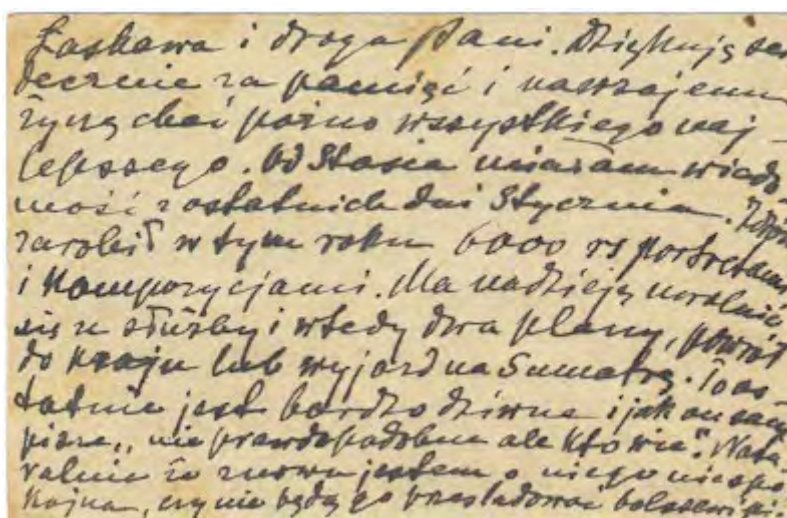 Łaskawa i droga Pani. Dziękuję ser
decznie za pamięć i nawzajem
życzę choć pózno wszystkiego naj-
lepszego. Od Stasia miałam wiado-
mość z ostatnich dni Stycznia.
zarobił w tym roku 6000 rs portretami
i kompozycjami. Ma nadzieję uwolnić
się ze służby i wtedy dwa plany, powrót
do kraju lub wyjazd na Sumatrę. To os-
tatnie jest bardzo dziwne i jak on sam
pisze „nie prawdopodobne ale kto wie". Natu-
ralnie że znowu jestem o niego niespo
kojna, czy nie będą go prześladować bolszewiki.